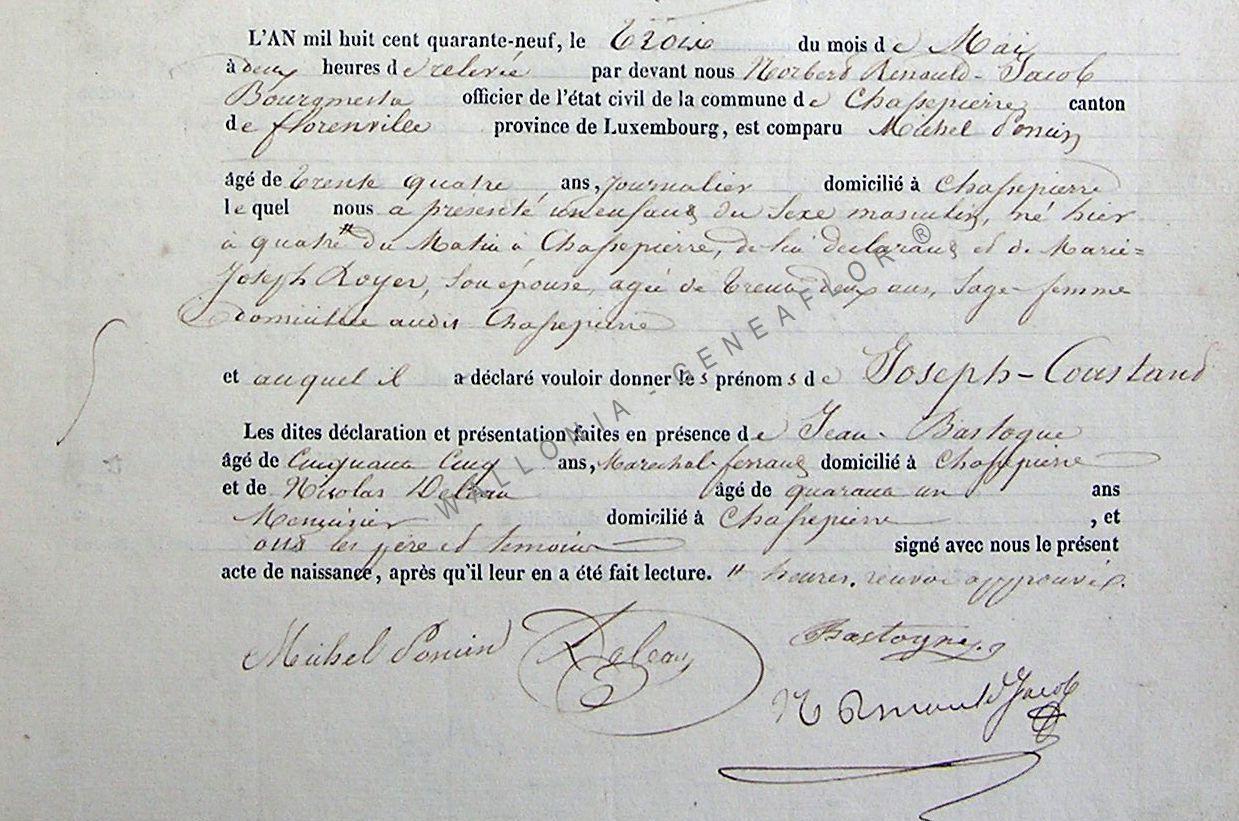 L'AN mil huit cent quarante-neuf, le Trois du mois de Mai
à deux heures de relevée par devant nous Norbert Renauld-Jacob
Bourgmestre officier de l'état civil de la commune de Chassepierre canton
de florenville province de Luxembourg, est comparu Michel Poncin
âgé de trente quatre ans, Journalier domicilié à Chassepierre
lequel nous a présenté un enfant du sexe masculin, né hier
à quatre " du Matin à Chassepierre, de lui déclarant et de Marie=
Joseph Royer, son épouse, agée de trente deux ans, Sage-femme
domiciliée audit Chassepierre
et auquel il a déclaré vouloir donner les prénoms de Joseph-Constant
Les dites déclaration et présentation faites en présence de Jean Bastogne
âgé de Cinquante Cinq ans, Marechal-ferrant domicilié à Chassepierre
et de Nicolas Deleau âgé de quarante un ans
Menuisier domicilié à Chassepierre, et
ont les père et temoins signé avec nous le présent
acte de naissance, après qu'il leur en a été fait lecture. " heures, renvoi approuvé.
Michel Poncin Deleau Bastogne
N Renauld Jacob
WALLONIA - GENEAFLOR ®